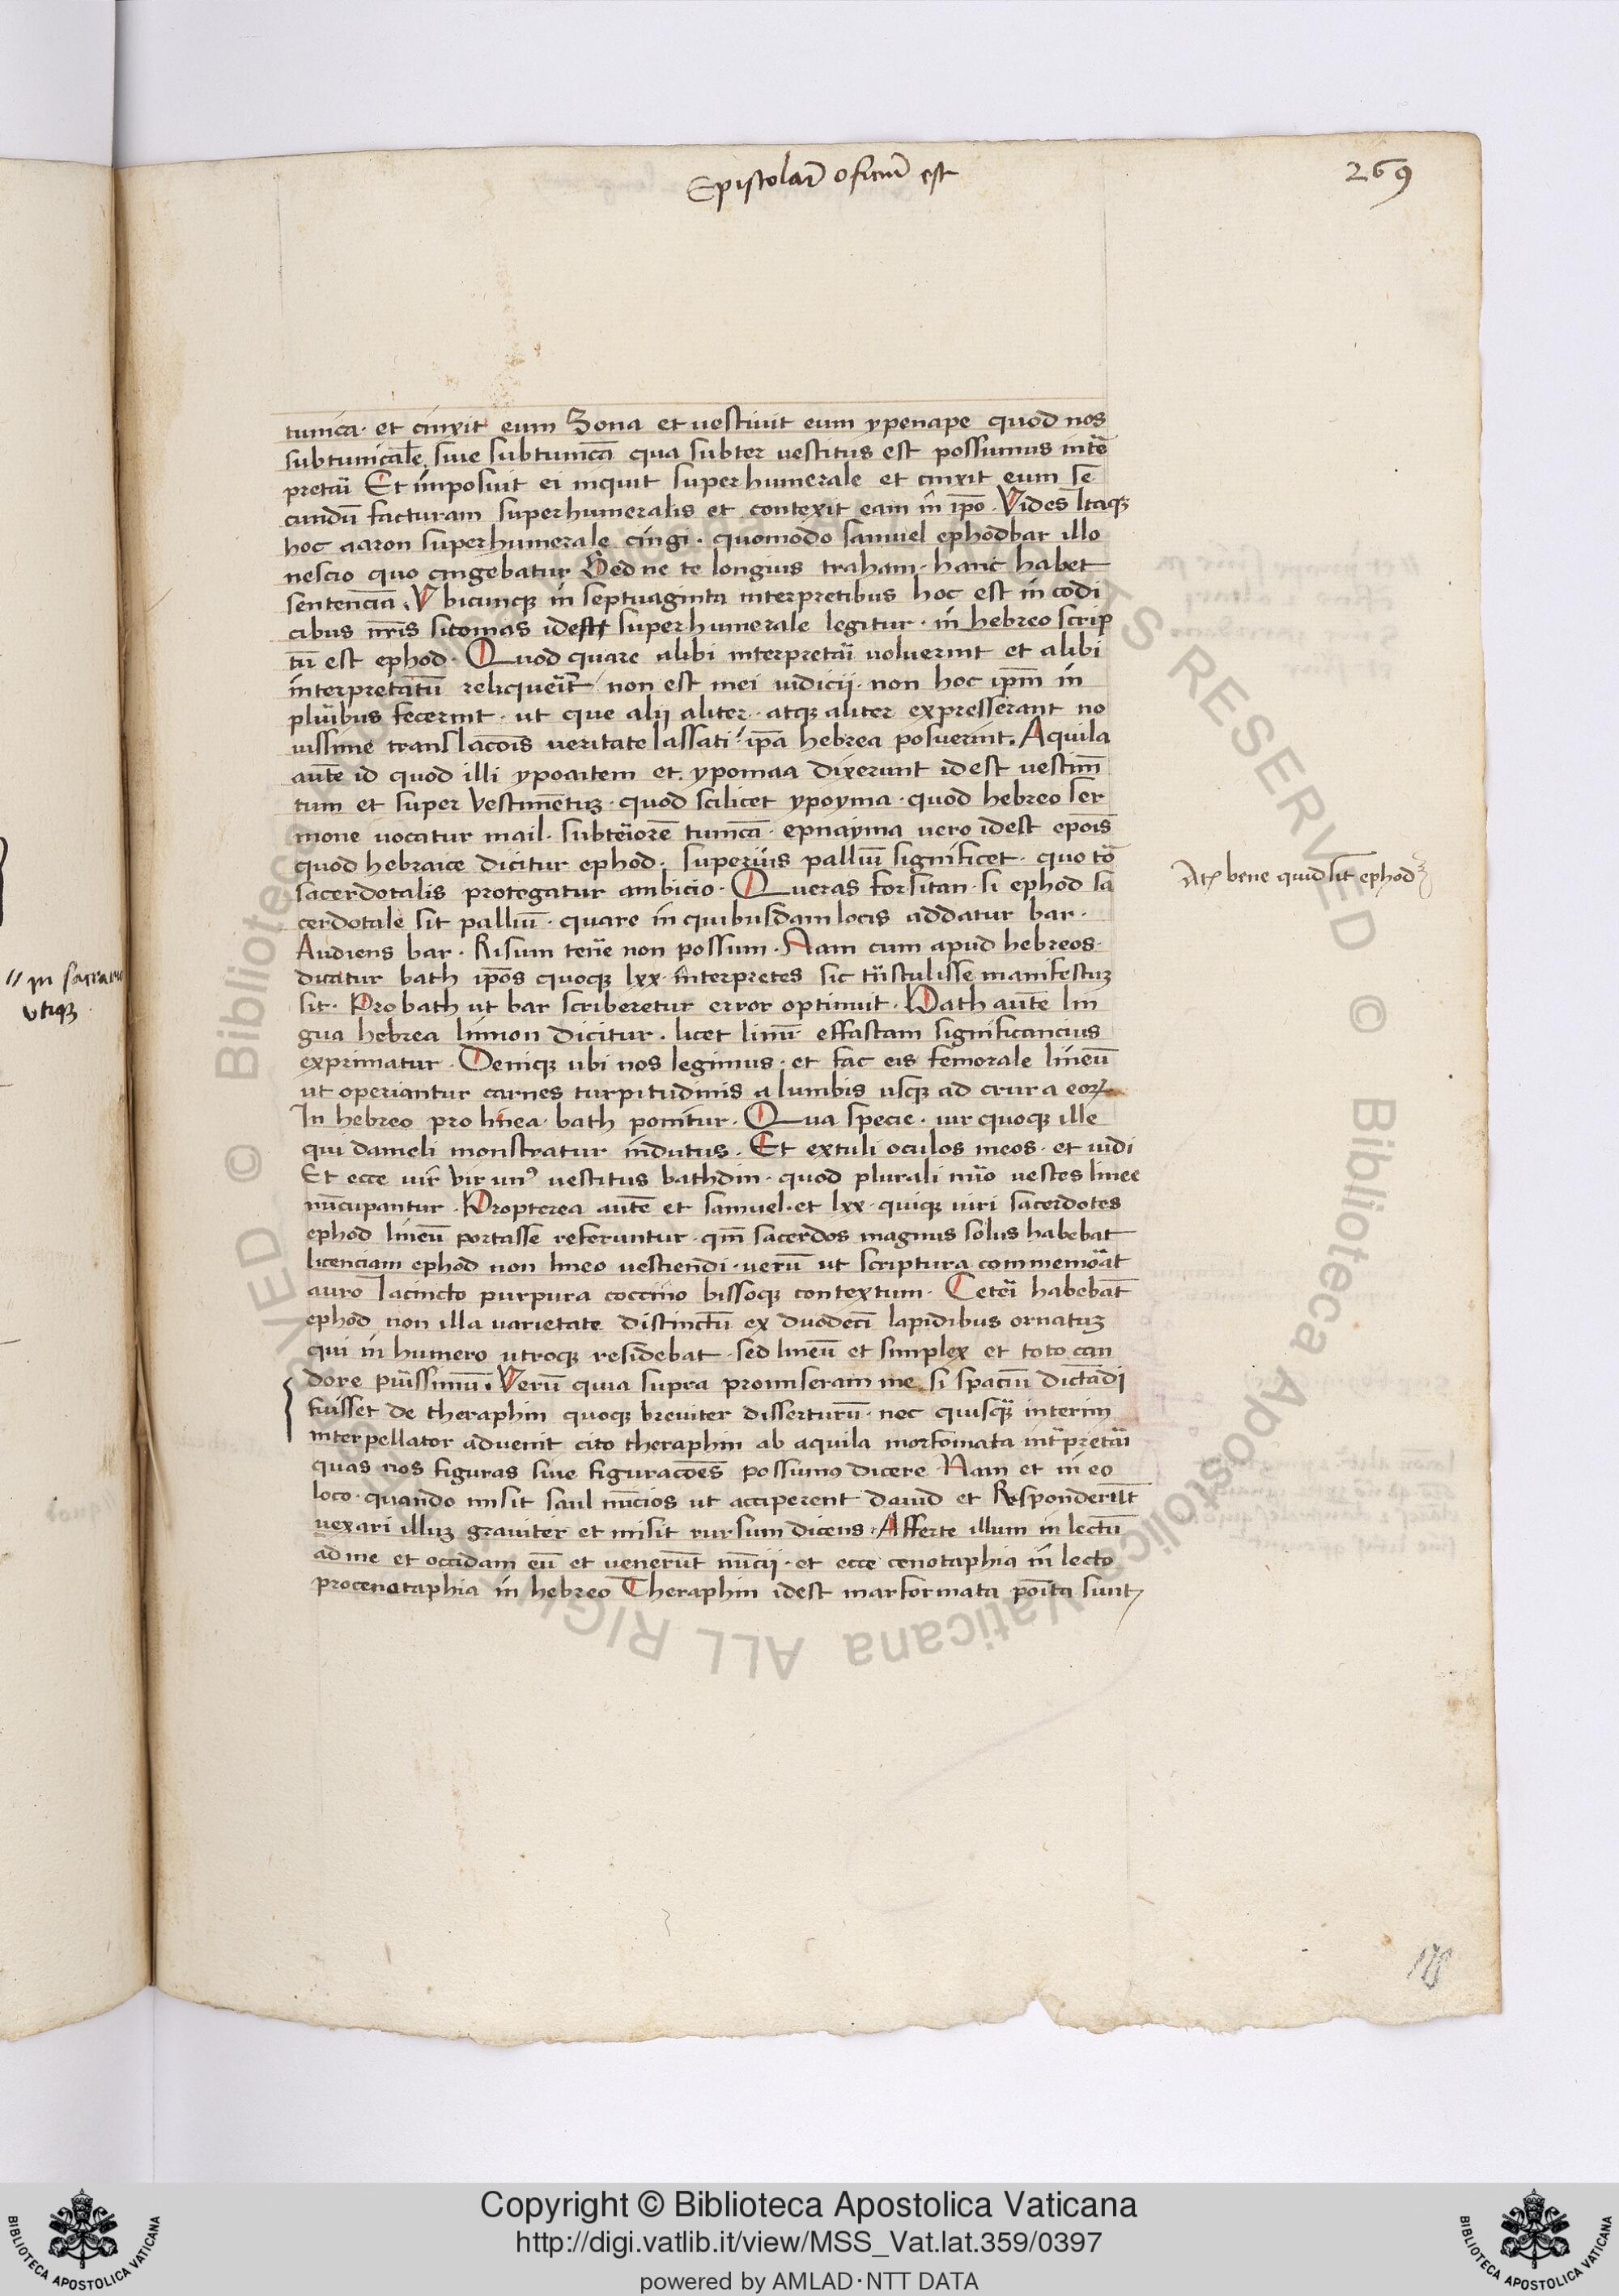 Epistolar̃ ofitiũ est
269
tunica· et cinxit eum Zona et vestivit eum ypenape quod nos
subtunicale sive subtunicã qua subter vestitus est possumus intẽ
pretari Et imposuit ei inquit superhumerale et cinxit eum se
cundũ facturam superhumeralis et contexit eam in ip̃o· Vides Itaqꝫ
hoc aaron superhumerale cingi· quomodo samuel ephodbar illo
nescio quo cingebatur Sed ne te longius traham· hanc habet
sentenciã· Vbicunqꝫ in septuaginta interpretibus hoc est in codi
cibus nr̃is sitomas idest superhumerale legitur· in hebreo scrip
tũ est ephod· Quod quare alibi interpretari voluerint et alibi
interpretatũ reliquerĩt non est mei iudicii· non hoc ip̃m in
pluribus fecerint· ut que alii aliter· atqꝫ aliter expresserant no
vissime translac̃ois veritate lassati· ip̃a hebrea posuerint· Aquila
aut̃e id quod illi ypoaitem et ypomaa dixerunt idest vestim̃
tum et super vestimẽtuꝫ· quod scilicet ypoyma· quod hebreo ser
mone vocatur mail· subteriorẽ tunicã· epnayma vero idest epoĩs
quod hebraice dicitur ephod· superius palliũ significet· quo to
sacerdotalis protegatur ambicio· Queras forsitan· si ephod sa
cerdotale sit palliũ· quare in quibusdam locis addatur bar·
Audiens bar· Risum tenere non possum· Nam cum apud hebreos
dicatur bath ip̃os quoqꝫ lxx· interpretes sic trãstulisse manifestuꝫ
sit· Pro bath ut bar scriberetur error optinuit· Bath aut̃e lin
gua hebrea linnon dicitur· licet linũ effastam significancius
exprimatur· Deniqꝫ ubi nos legimus· et fac eis femorale lineũ
ut operiantur carnes turpitudinis a lumbis usqꝫ ad crura eoꝝ
In hebreo pro linea bath ponitur· Qua specie· vir quoqꝫ ille
qui danieli monstratur indutus· Et extuli oculos meos· et vidi
Et ecce vir vir unꝰ vestitus bathdin· quod plurali nũo vestes linee
nũcupantur· Propterea aut̃e et samuel· et lxx· quiqꝫ viri sacerdotes
ephod lineũ portasse referuntur· qm̃ sacerdos magnus solus habebat
licenciam ephod non lineo vestiendi· verũ ut scriptura commemorat
auro Iacincto purpura coccino bissoqꝫ contextum· Ceteri habebãt
ephod non illa varietate distinctũ ex duodecĩ lapidibus ornatuꝫ
qui in humero utroqꝫ residebat· sed lineũ et simplex et toto can
dore purissimũ· Verũ quia supra promiseram me si spaciũ dictãdi
fuisset de theraphin quoqꝫ breviter disserturũ· nec quisqã interim
interpellator advenit cito theraphin ab aquila morfomata int̃pretari
quas nos figuras sive figurac̃oes possumꝰ dicere Nam et in eo
loco· quando misit saul nũcios ut acciperent david et Responderũt
vexari illuꝫ graviter et misit rursum dicens· Afferte illum in lectũ
ad me et occidam eũ et venerũt nũcii· et ecce cenotaphia in lecto
procenotaphia in hebreo Theraphin idest marformata poĩta sunt
bene quid sit ephod
// in sacrario
utiqꝫ
178
Copyright © Biblioteca Apostolica Vaticana
http://digi.vatlib.it/view/MSS_Vat.lat.359/0397
powered by AMLAD·NTT DATA
BIBLIOTECA APOSTOLICA VATICANA
BIBLIOTECA APOSTOLICA VATICANA
© Biblioteca Apostolica Vaticana ALL RIGHTS RESERVED © Biblioteca Apostolica Vaticana ALL RIGHTS RESERVED